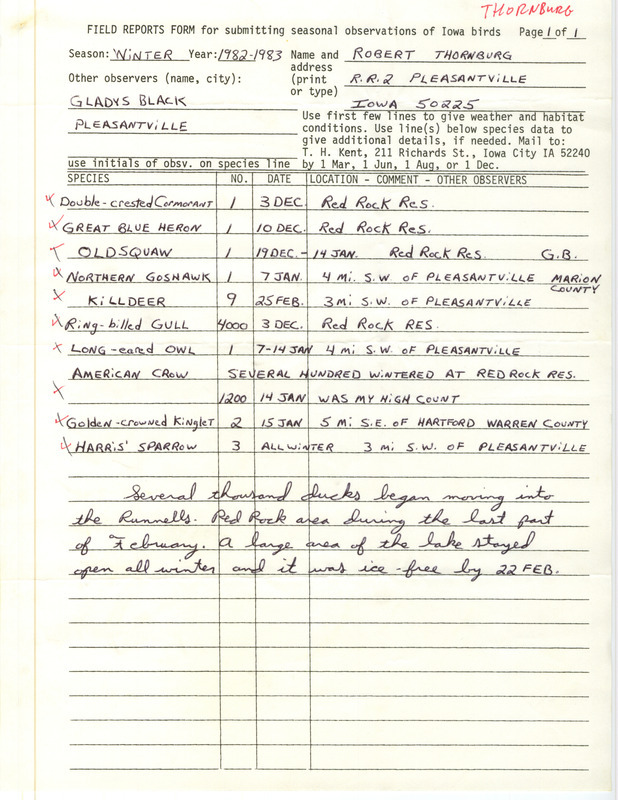 THORNBURG
FIELD REPORTS FORM for submitting seasonal observations of Iowa birds Page 1 of 1
Season: WINTER Year: 1982-1983 Name and ROBERT THORNBURG
address
Other observers (name, city): (print R.R.2 PLEASANTVILLE
or type)
GLADYS BLACK IOWA 50225
PLEASANTVILLE
Use first few lines to give weather and habitat
conditions. Use line(s) below species data to
give additional details, if needed. Mail to:
T. H. Kent, 211 Richards St., Iowa City IA 52240
use initials of obsv. on species line by 1 Mar, 1 Jun, 1 Aug, or 1 Dec.
SPECIES NO. DATE LOCATION - COMMENT - OTHER OBSERVERS
Double-crested Cormorant 1 3 DEC. Red Rock Res.
GREAT BLUE HERON 1 10 DEC. Red Rock Res.
OLDSQUAW 1 19 DEC.- 14 JAN. Red Rock Res. G.B.
NORTHERN GOSHAWK 1 7 JAN. 4 mi. S.W. OF PLEASANTVILLE MARION
COUNTY
KILLDEER 9 25 FEB. 3 mi. S.W. OF PLEASANTVILLE
Ring-billed GULL 4000 3 DEC. Red Rock RES.
LONG-eared OWL 1 7-14 JAN 4 mi S.W. OF PLEASANTVILLE
AMERICAN CROW SEVERAL HUNDRED WINTERED AT RED ROCK RES.
1200 14 JAN WAS MY HIGH COUNT
Golden-crowned Kinglet 2 15 JAN 5 mi S.E. OF HARTFORD WARREN COUNTY
HARRIS' SPARROW 3 ALL WINTER 3 mi S.W. OF PLEASANTVILLE
Several thousand ducks began moving into
the Runnells. Red Rock area during the last part
of February. A large area of the lake stayed
open all winter and it was ice-free by 22 FEB.